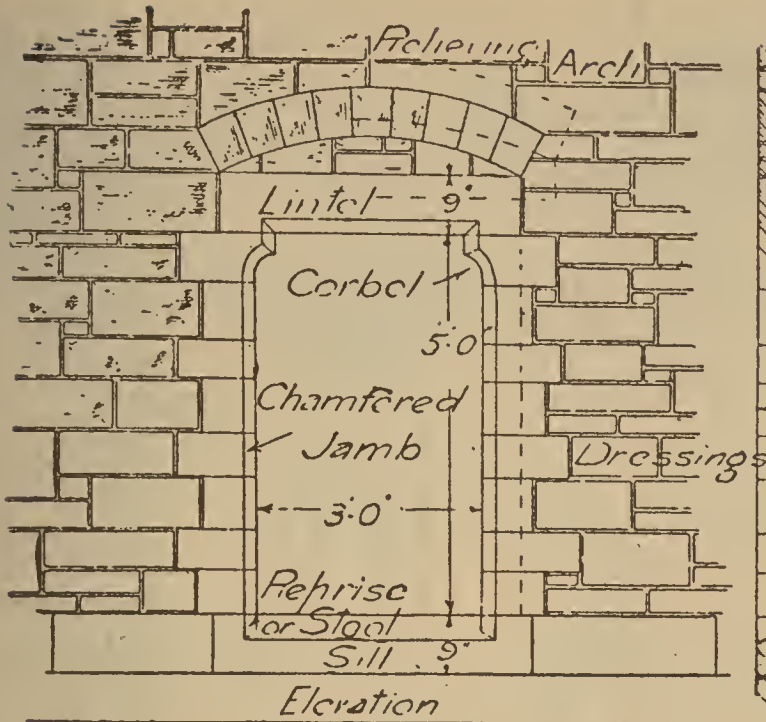 Relieving Arch
Lintel 9"
Corbel
5'·0"
Chamfered
Jamb
Dressings
3'·0"
Reprise
or Stool
Sill 9"
Elevation